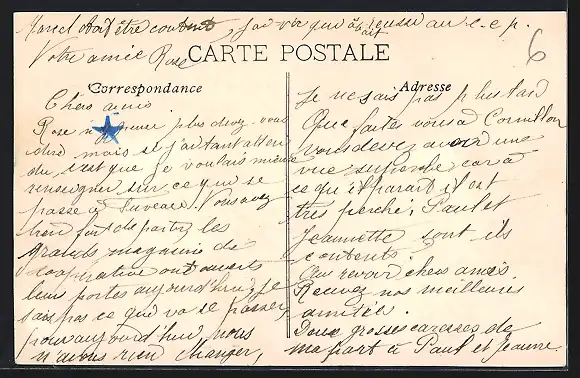 Marcel doit être content, j'ai vu qu'il a réussi au c.e.p.
était
Votre amie Rose
6
CARTE POSTALE
Correspondance
Adresse
Chers amis
Rose plus chez vous
dire mais si j'ai tant atten
du c'est que je voulais mieux
renseigner sur ce qui se
passe à Suresnes. Vous avez
bien fait de partir, les
grands magasins de
coopérative ont ouverts
leurs portes aujourd'hui, je
sais pas ce qui va se passer,
pour aujourd'hui nous
n'avons rien changer,
Je ne sais pas plus tard
Que faites vous à Cornillon
vous devez avoir une
vue superbe car à
ce qu'il parait il est
très perché, Paul et
Jeannette sont ils
contents.
Au revoir chers amis.
Recevez nos meilleures
amitiés.
Douce grosses caresses de
ma part à Paul et Jeanne.